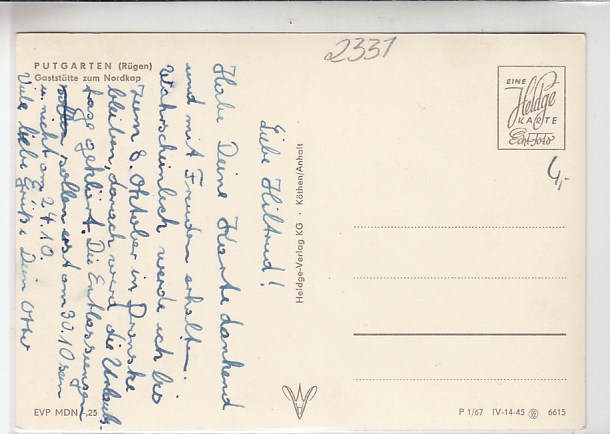 2331
PUTGARTEN (Rügen)
Gaststätte zum Nordkap
Liebe Hiltrud!
Habe Deine Karte dankend
und mit Freuden erhalten.
Wahrscheinlich werde ich bis
zum 8. Oktober in Dranske
bleiben, danach werd. die Urlaubs-
tage geklärt. Die Entlassungen
sollen erst am 30.10 sein
u. nicht am 24.10.
Viele liebe Grüße Dein Otto
Heldge-Verlag KG · Köthen/Anhalt
EINE
Heldge
KARTE
Echt-foto
4,-
EVP MDN -,25
P 1/67 IV-14-45 6615